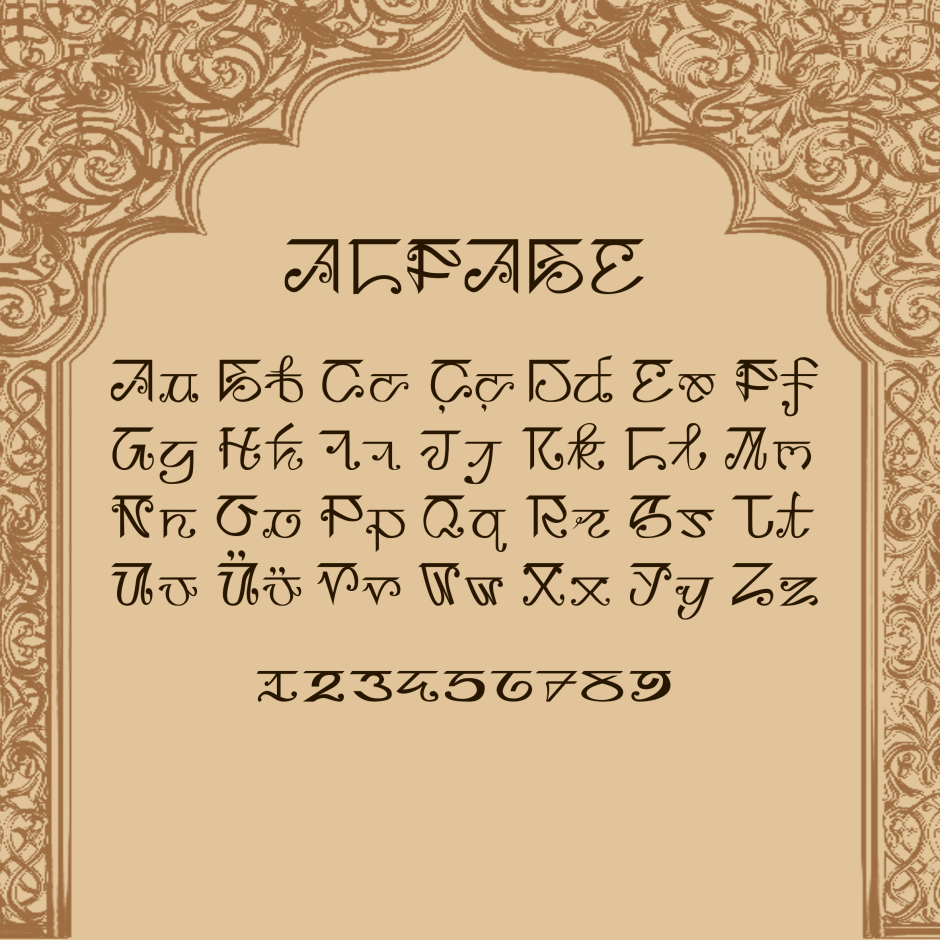 ALFABE
Aa Bb Cc Çç Dd Ee Ff
Gg Hh Iı Jj Kk Ll Mm
Nn Oo Pp Qq Rr Ss Tt
Uu Üü Vv Ww Xx Yy Zz
123456789